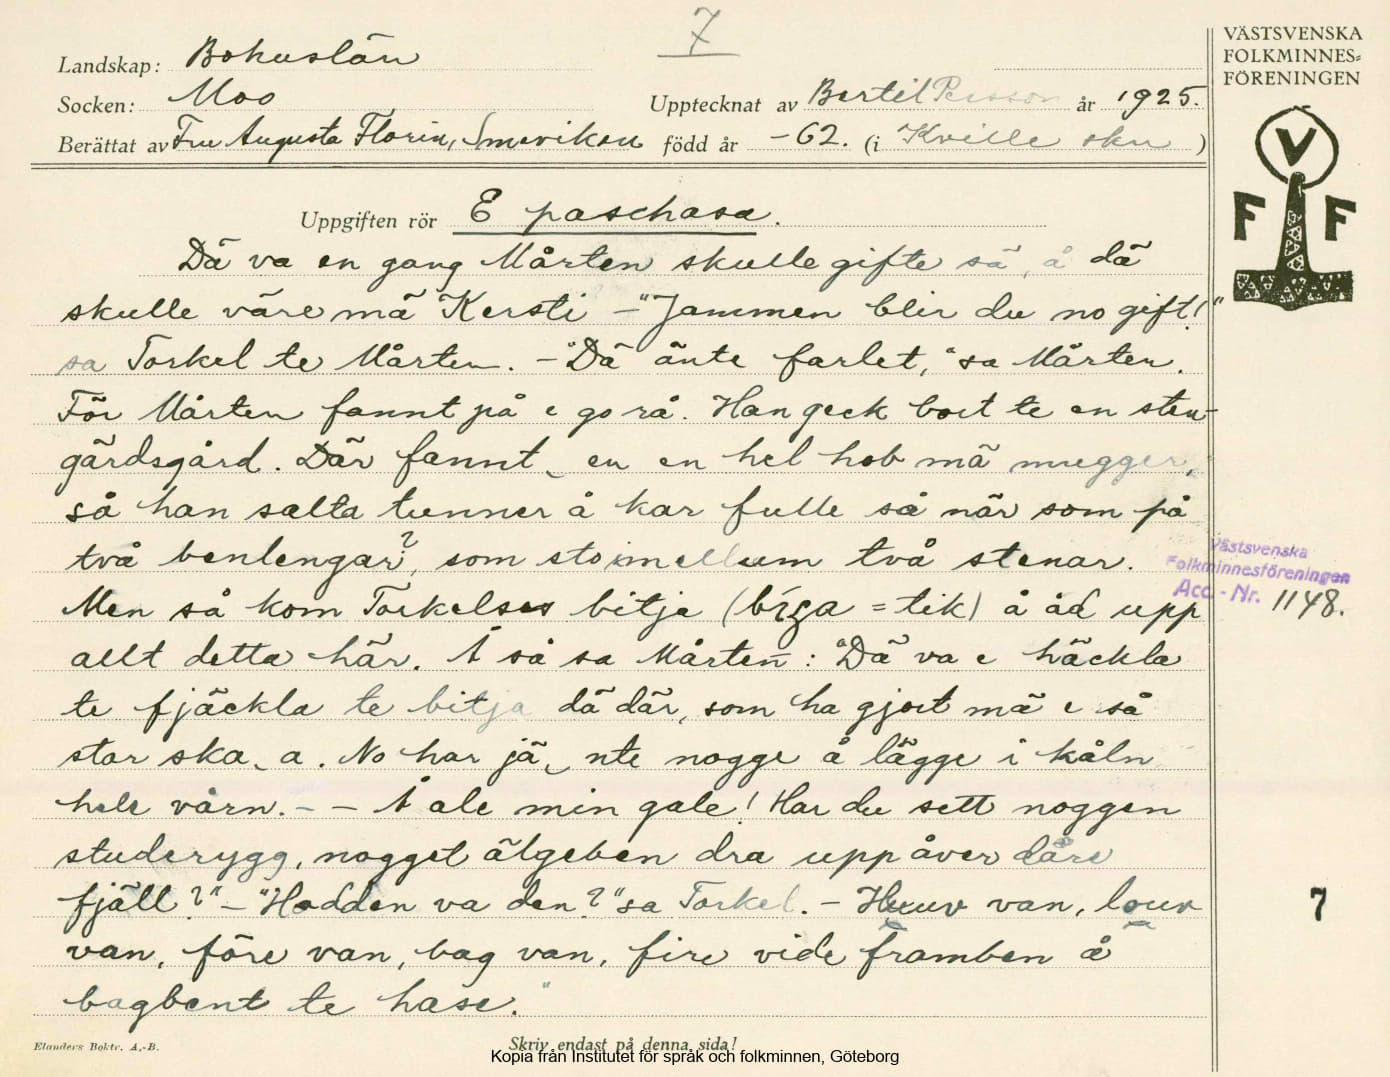 7
VÄSTSVENSKA
FOLKMINNES=
FÖRENINGEN
Landskap: Bohuslän
Socken: Moo
Upptecknat av Bertil Persson år 1925.
Berättat av Fru Augusta Florin, Smeviken född år -62. (i Kville skn )
V
F F
Uppgiften rör E paschasa.
Dä va en gang Mårten skulle gifte sä, å dä
skulle väre mä Kersti - "Jammen blir du no gift!"
sa Torkel te Mårten. - "Dä änte farlet," sa Mårten.
För Mårten fannt på e go rå. Han geck bort te en sten-
gärdsgård. Där fannt en en hel hob mä mugger,
så han salta tunner å kar fulle så när som på
två benlengar?, som sto imellum två stenar.
Men så kom Torkelses bitja (bíza = tik) å åd upp
allt detta här. Å så sa Mårten: "Dä va e häckla
te fjäckla te bitja dä där, som ha gjort mä e så
stor ska a. No har jä nte nogge å lägge i kåln
hele vårn. - - Å ale min gale! Har du sett noggen
studerygg, nogget älgeben dra upp åver dåre
fjäll?" - "Hodden va den?" sa Torkel. - Huuv van, louv
van, före van, bag van, fire vide framben å
bagbent te hase."
Västsvenska
Folkminnesföreningen
Acc.-Nr. 1148.
7
Elanders Boktr. A.-B.
Skriv endast på denna sida!
Kopia från Institutet för språk och folkminnen, Göteborg